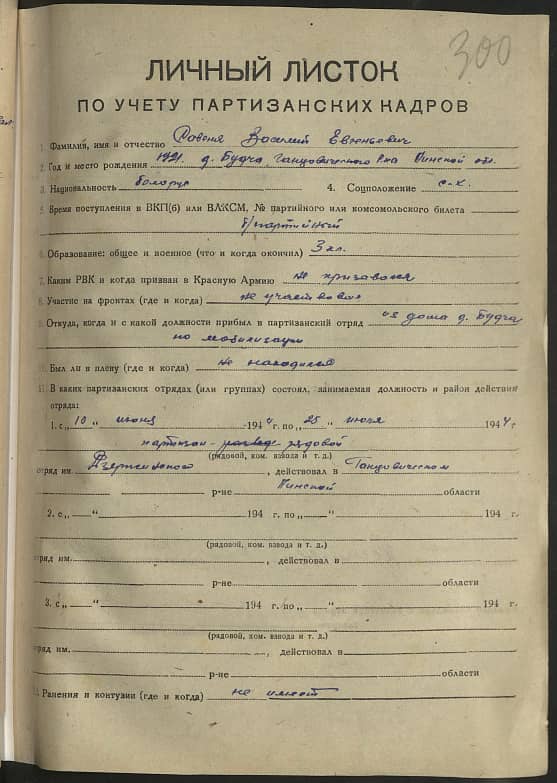 300
ЛИЧНЫЙ ЛИСТОК
ПО УЧЕТУ ПАРТИЗАНСКИХ КАДРОВ
1. Фамилия, имя и отчество Василий
2. Год и место рождения 1921. д. Будча, Ганцовичского р-на Пинской обл.
3. Национальность белорус 4. Соцположение с-х.
5. Время поступления в ВКП(б) или ВЛКСМ, № партийного или комсомольского билета
б/партийный
6. Образование: общее и военное (что и когда окончил) 3 кл.
7. Каким РВК и когда призван в Красную Армию не призывался
8. Участие на фронтах (где и когда) не участвовал
9. Откуда, когда и с какой должности прибыл в партизанский отряд из дома д. Будча
по мобилизации
10. Был ли в плену (где и когда) не находился
11. В каких партизанских отрядах (или группах) состоял, занимаемая должность и район действия
отряда:
1. с „10" июня 1944 г. по „25" июля 1944 г
партизан- рядовой
(рядовой, ком. взвода и т. д.)
отряд им. Дзержинского, действовал в Ганцовическом
р-не Пинской области
2. с „ " 194 г. по „ " 194 г.
(рядовой, ком. взвода и т. д.)
отряд им. , действовал в
р-не области
3. с „ " 194 г. по „ " 194 г.
(рядовой, ком. взвода и т. д.)
отряд им. , действовал в
р-не области
Ранения и контузии (где и когда) не имеет